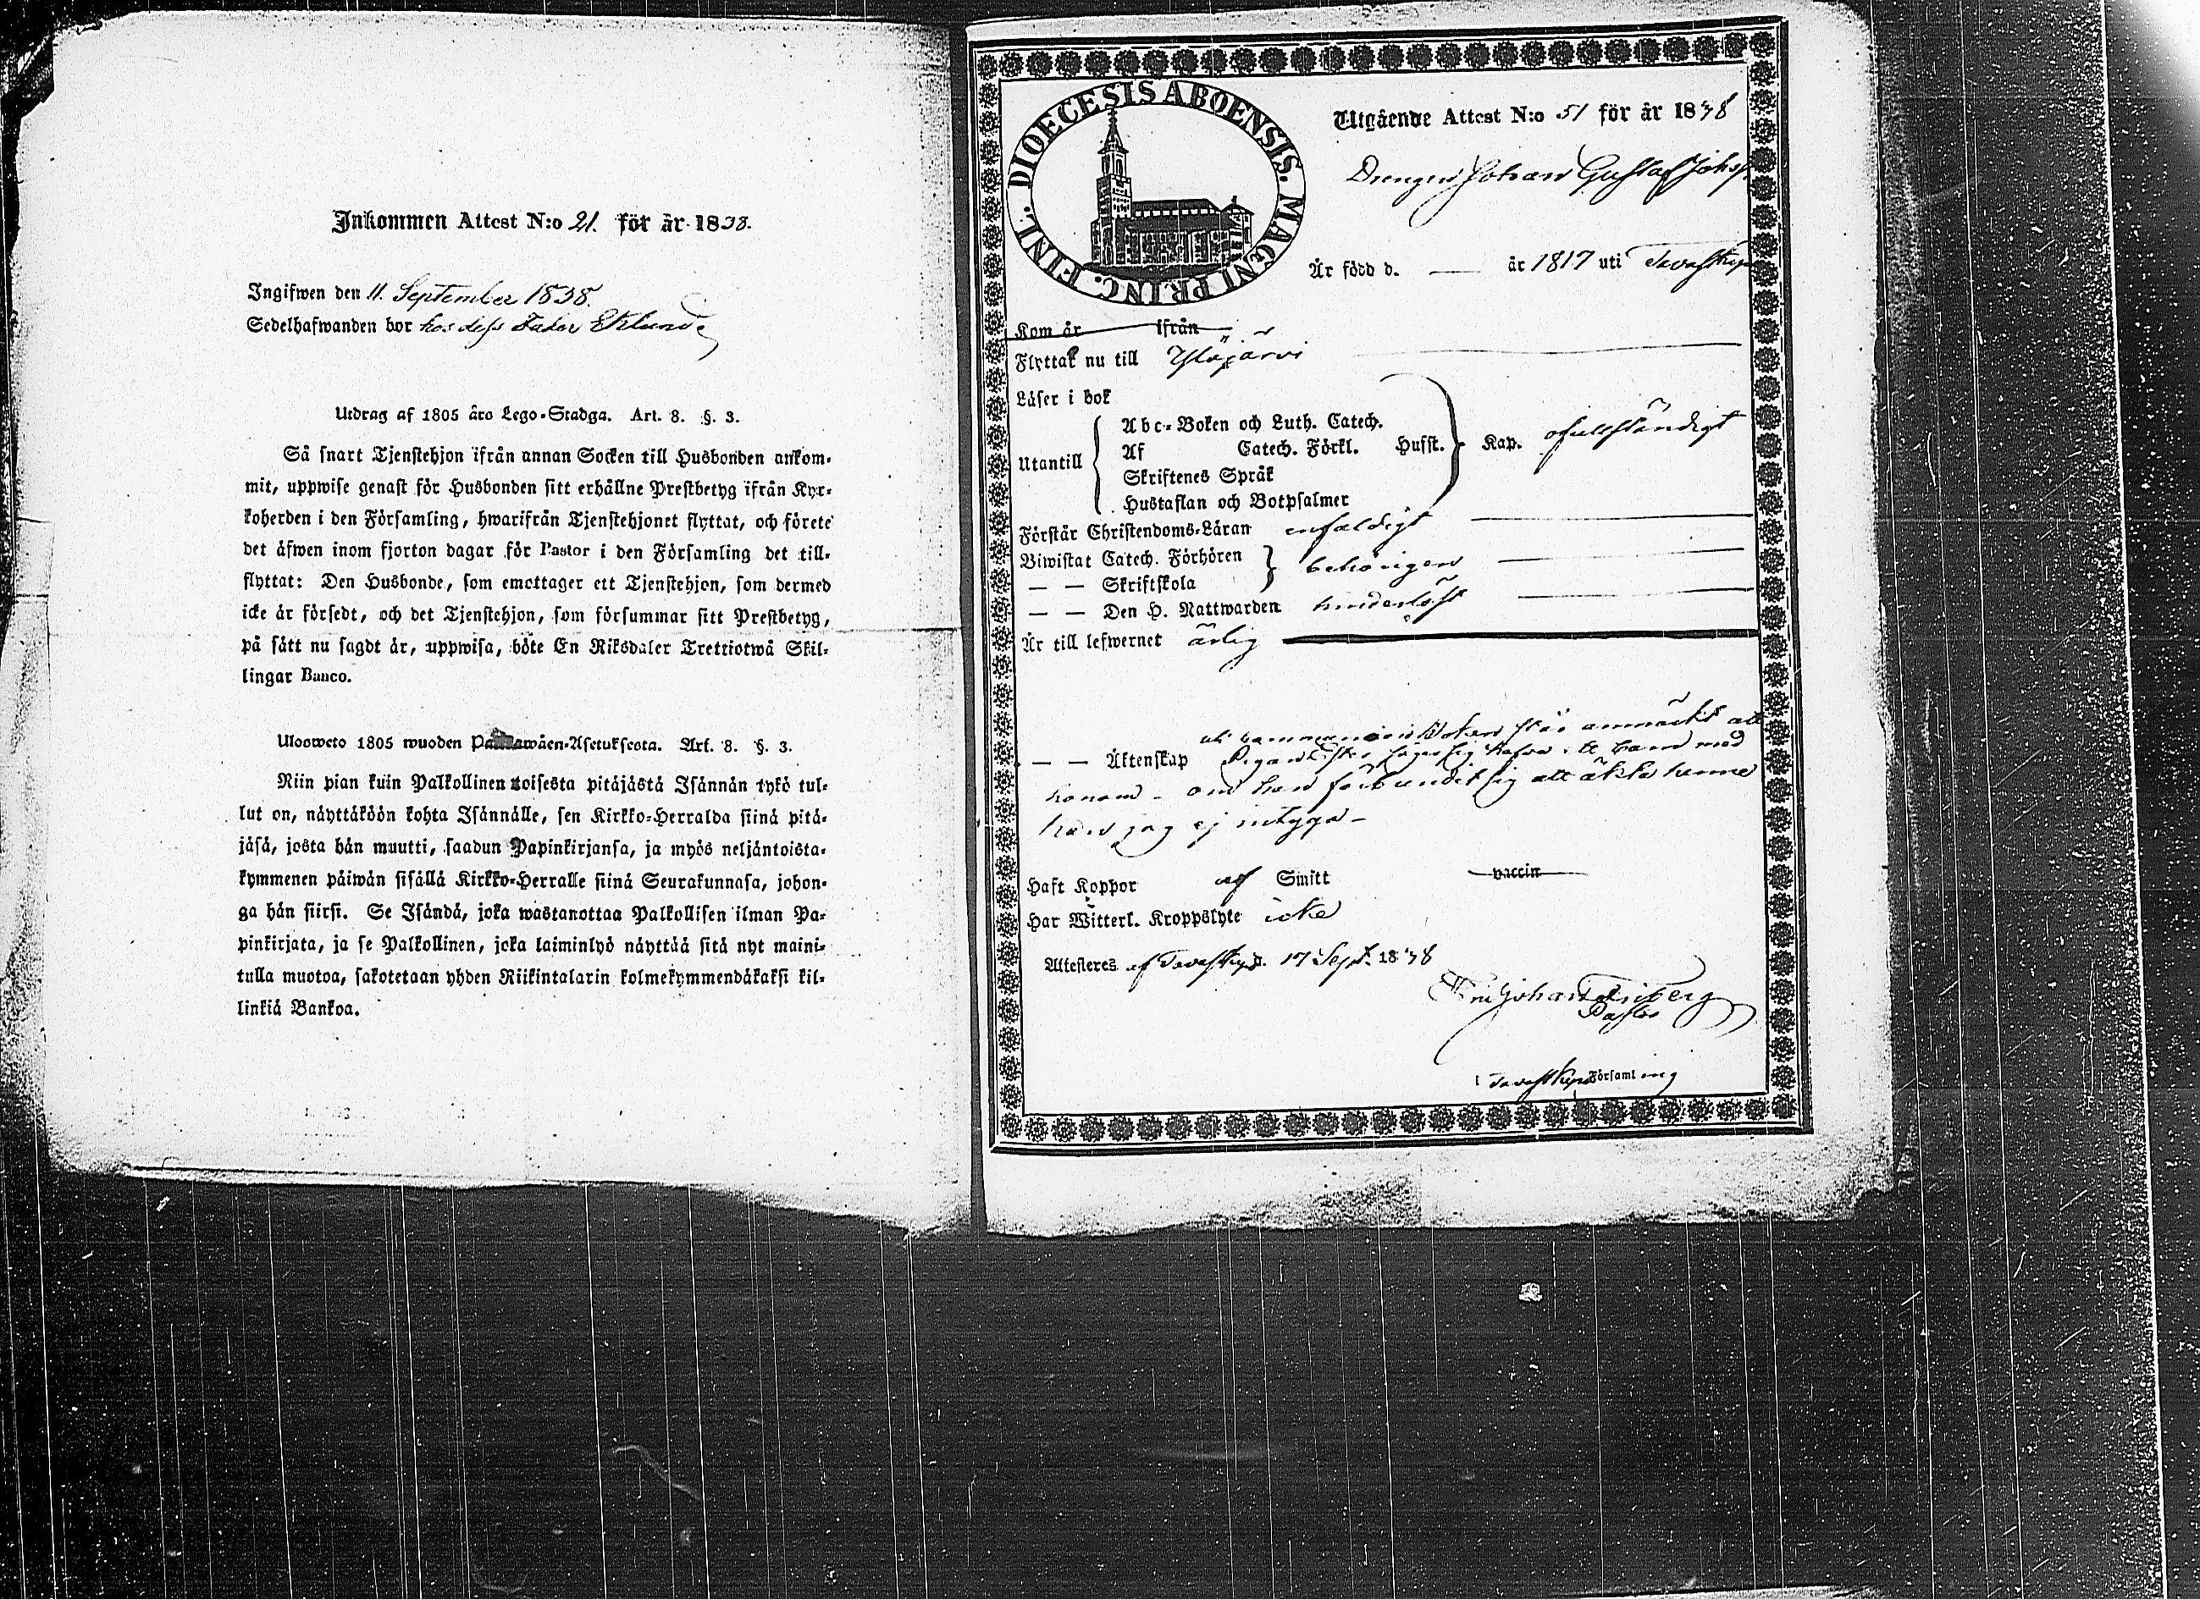 Inkommen Attest N:o 21. för år 1838.
Ingifwen den 11. September 1838.
Sedelhafwanden bor hos dess Fader Eklund
Utdrag af 1805 års Lego-Stadga. Art. 8. §. 3.
Så snart Tjenstehjon ifrån annan Socken till Husbonden ankom-
mit, uppwise genast för Husbonden sitt erhållne Prestbetyg ifrån Kyr-
koherden i den Församling, hwarifrån Tjenstehjonet flyttat, och förete
det äfwen inom fjorton dagar för Pastor i den Församling det till-
flyttat: Den Husbonde, som emottager ett Tjenstehjon, som dermed
icke är försedt, och det Tjenstehjon, som försummar sitt Prestbetyg,
på sätt nu sagdt är, uppwisa, böte En Riksdaler Trettiotwå Skil-
lingar Banco.
Ulosweto 1805 wuoden Palkawäen-Asetuksesta. Art. 8. §. 3.
Niin pian kuin Palkollinen toisesta pitäjästä Isännän tykö tul-
lut on, näyttäköön kohta Isännälle, sen Kirkko-Herralda siinä pitä-
jäsä, josta hän muutti, saadun Papinkirjansa, ja myös neljäntoista-
kymmenen päiwän sisällä Kirkko-Herralle siinä Seurakunnasa, johon-
ga hän siirsi. Se Isändä, joka wastanottaa Palkollisen ilman Pa-
pinkirjata, ja se Palkollinen, joka laiminlyö näyttää sitä nyt maini-
tulla muotoa, sakotetaan yhden Riikintalarin kolmekymmendäkaksi kil-
linkiä Bankoa.
DIOECESIS ABOENSIS. MAGNI PRINC. FINL.
Utgående Attest N:o 51 för år 1838
Drengen Johan Gustaf Johsp.
Är född d. — år 1817 uti Tavastkyro
Kom år ifrån
Flyttar nu till Ylöjärvi
Läser i bok
Utantill
Abc-Boken och Luth. Catech.
Af Catech. Förkl. Hufst. Kap. ofullständigt
Skriftenes Språk
Hustaflan och Botpsalmer
Förstår Christendoms-Läran enfaldigt
Biwistat Catech. Förhören behörigen
— — Skriftskola
— — Den H. Nattwarden hinderlöst
Är till lefwernet ärlig
uti communion Boken står anmärkt att
— — Äktenskap Pigan säger sig hafva barn med
honom - om han förbundit sig att äkta henne
kan jag ej intyga -
Haft Koppor af Smitt vaccin
Har Witterl. Kroppslyte icke
Attesteres af Tavastkyro d. 17 Sept. 1838
Johan Friberg
Pastor
i Tavastkyro Församling